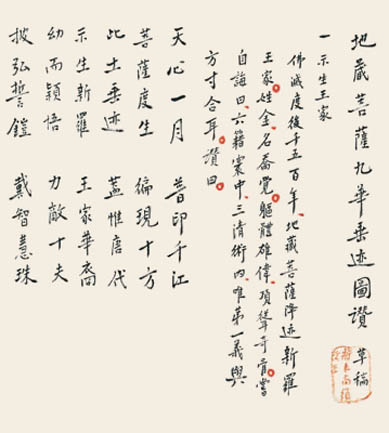 地藏菩薩九華垂迹圖讚 草稿
一 示生王家
佛滅度後千五百年地藏菩薩降迹新羅
王家姓金名喬覺軀體雄偉項聳奇骨嘗
自誨曰六籍寰中三清術內唯第一義與
方寸合耳讚曰
天心一月 普印千江
菩薩度生 徧現十方
此土垂迹 蓋惟唐代
示生新羅 王家華裔
幼而穎悟 力敵十夫
披弘誓鎧 戴智慧珠